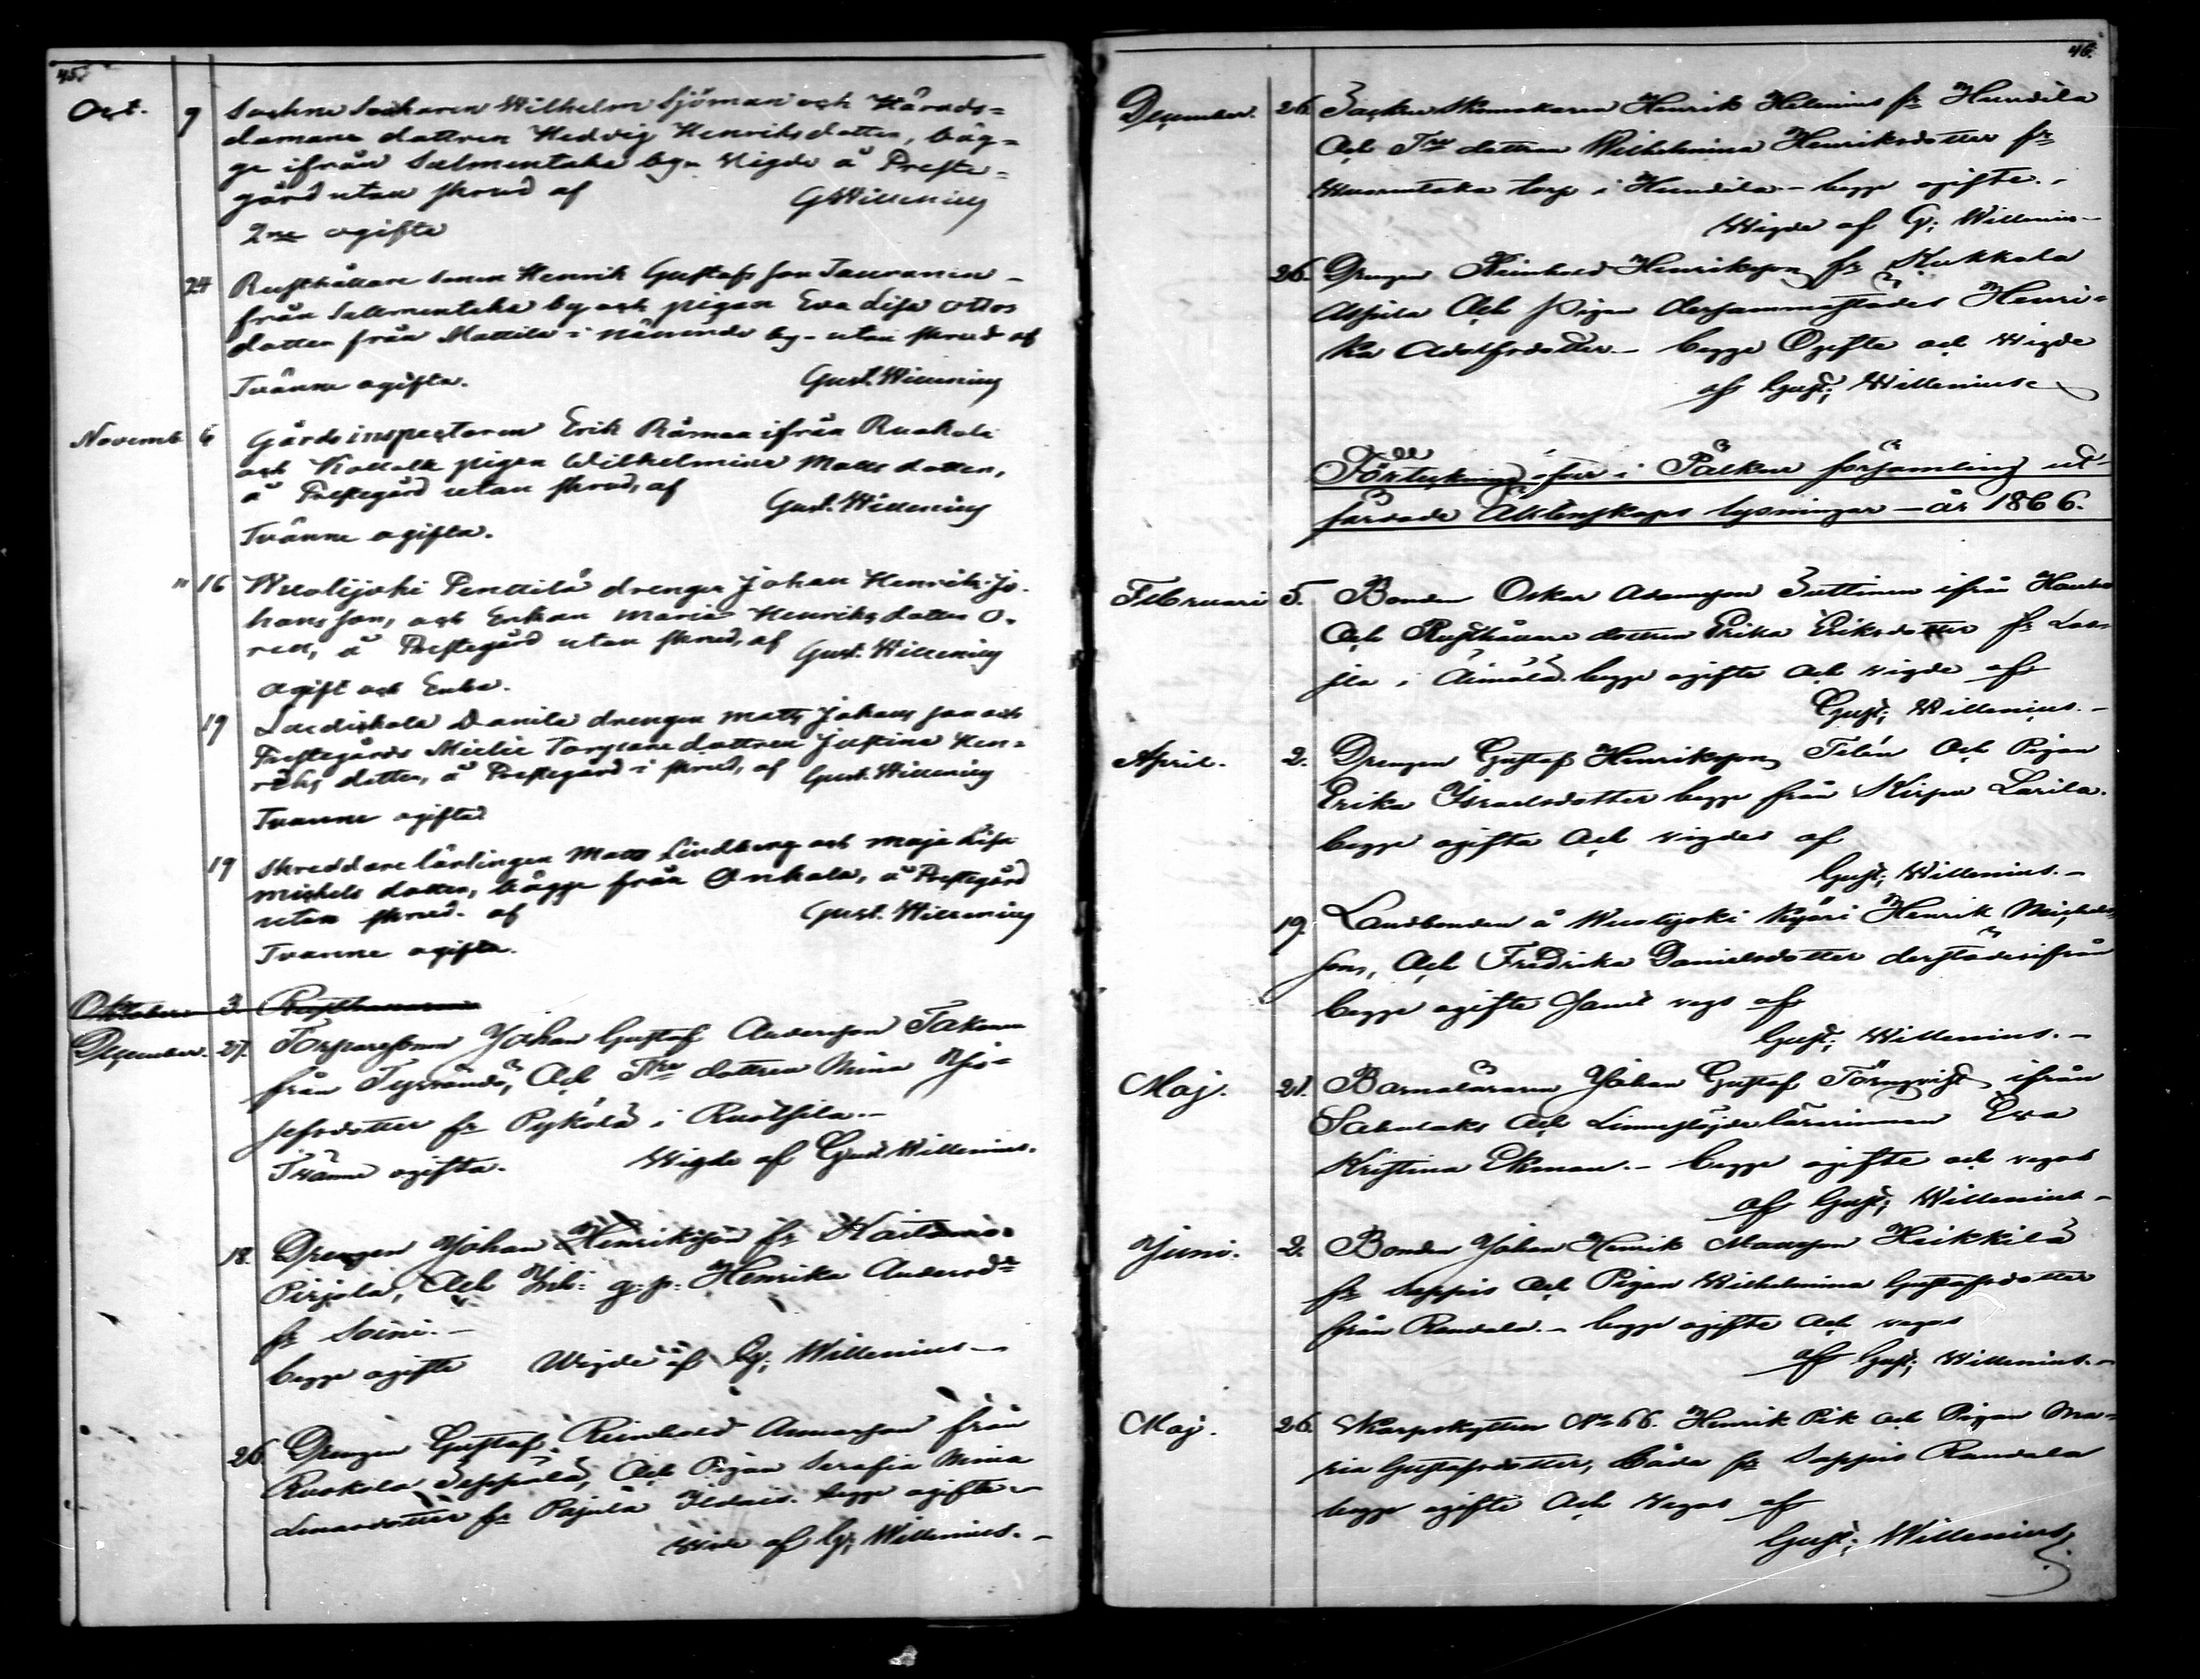 45.
Oct. 9 Sockne Skräddaren Wilhelm Sjöman och Härads=
domare dottren Hedvig Henriks dotter, båg=
ge ifrån Salmentaka by. Vigde å Preste=
gård utan skrud af GWillenius
2ne ogifte
24 Rusthållare sonen Henrik Gustafs son Tauranen
från Salmentaka by och pigan Eva Lisa Ottos
dotter från Mattila i nämnde by - utan skrud af
Tvänne ogifta. Gust. Willenius
Novemb 6 Gårds inspectoren Erik Råman ifrån Ruokola
och pigan Wilhelmina Matts dotter,
å Prestegård utan skrud, af Gust. Willenius
Tvänne ogifta.
" 16 Wuolijoki Penttilä drengen Johan Henrik Jo-
hans son, och Enkan Maria Henriks dotter O-
ren, å Prestegård utan skrud, af Gust. Willenius
Ogift och Enka.
19 Danila drengen Matts Johans son och
Prestegårds Mielie Torpare dottren Justina Hen=
riks dotter, å Prestegård i skrud, af Gust. Willenius
Tvanne ogifta
19 Skreddare lärlingen Matts Lindberg och Maja Lisa
Michels dotter, bågge från Onkala, å Prestegård
utan skrud. af Gust. Willenius
Tvanne ogifta.
Oktober 3. Rusthållaren
December. 27. Torparesonen Johan Gustaf Andersson Takanen
från Tyrvändö, Och Tre dottren Mina Jo=
sefsdotter fr Pykölä i Ruotsila.-
Tvänne ogifta. Wigde af Gust Willenius.
18. Drengen Johan Henriksson fr Kaitamo.
Pirjola, Och Inh: g. p. Henrika Andersdr
fr Soini.-
begge ogifte Wigde af G; Willenius-
26 Drengen Gustaf Reinhold Annasson från
Ruokola Seppälä, Och Pigan Serafia Mina
Lenasdotter fr Pajula begge ogifte -
af G; Willenius.-
46.
December. 26. Socken Skomakaren Henrik Helenius fr Hundila
Och Tre dottren Wilhelmina Henriksdotter fr
torp i Hundila - begge ogifte. -
Wigde af G; Willenius-
26. Drengen Reinhold Henriksson fr Kukkola
Alhila Och Pigan dersammastädes Henri=
ka Adolfsdotter - begge Ogifte och Wigde
af Gust; Willenius
Förteckning öfver i Pälkäne församling ut-
färdade Äktenskaps lysningar - år 1866.
Februari 5. Bonden Oskar Adamsson Suttinen ifrån Hauho
Och Rusthållare dottren Erika Eriksdotter fr Las-
sila i Äimälä begge ogifte Och vigde af
Gust; Willenius.-
April. 2. Drengen Gustaf Henriksson Telén Och Pigan
Erika Israelsdotter begge från Kirpu Larila.
begge ogifta Och vigdes af
Gust; Willenius.-
19. Landbonden å Wuolijoki Kyäri Henrik Michels
son, Och Fredrika Danielsdotter derstädesifrån
begge ogifte Samt vegs af
Gust; Willenius.-
Maj. 21. Barnaläraren Johan Gustaf Törnqvist ifrån
Sahalaks Och Linneslöjdelärarinnan Eva
Kristina Ekman.- begge ogifte och vegos
af Gust; Willenius-
Juni. 2. Bonden Johan Henrik Mattsson Heikkilä
fr Sappis Och Pigan Wilhelmina Gustafsdotter
från Randala.- begge ogifte Och vegos
af Gust; Willenius.-
Maj. 26. Skarpskytten No 66. Henrik Pik Och Pigan Ma=
ria Gustafsdotter, Båda fr Sappis Randala
begge ogifte Och vegos af
Gust; Willenius